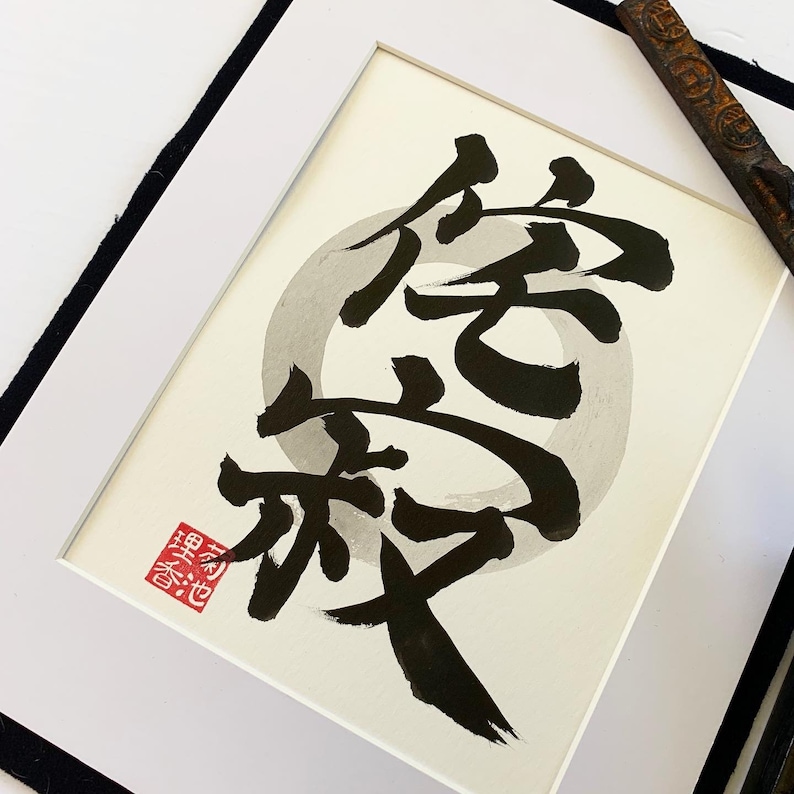 侘寂
菊池
理香